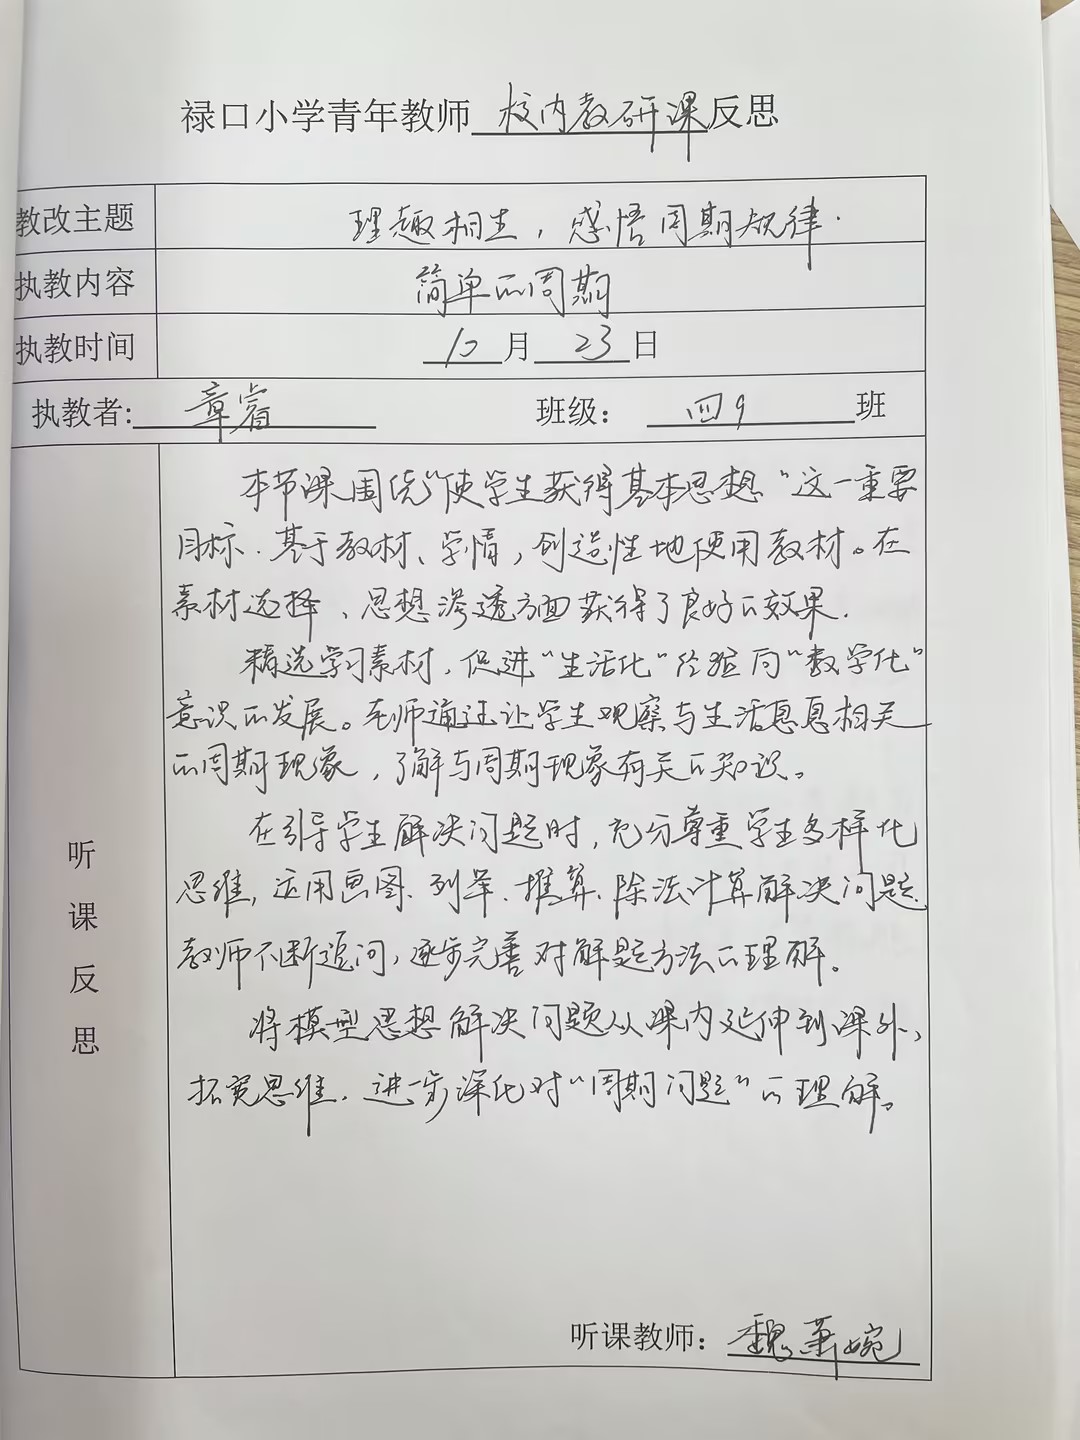 禄口小学青年教师校内教研课反思
教改主题 理趣相生，感悟周期规律.
执教内容 简单的周期
执教时间 10月23日
执教者:章睿 班级：四9班
听课反思
本节课围绕“使学生获得基本思想”这一重要
目标.基于教材、学情，创造性地使用教材。在
素材选择、思想渗透方面获得了良好的效果.
精选学习素材，促进“生活化”经验向“数学化”
意识的发展。老师通过让学生观察与生活息息相关
的周期现象，了解与周期现象有关的知识。
在引导学生解决问题时，充分尊重学生多样化
思维，运用画图、列举、推算、除法计算解决问题.
教师不断追问，逐步完善对解题方法的理解。
将模型思想解决问题从课内延伸到课外，
拓宽思维，进一步深化对“周期问题”的理解。
听课教师：魏萧婉